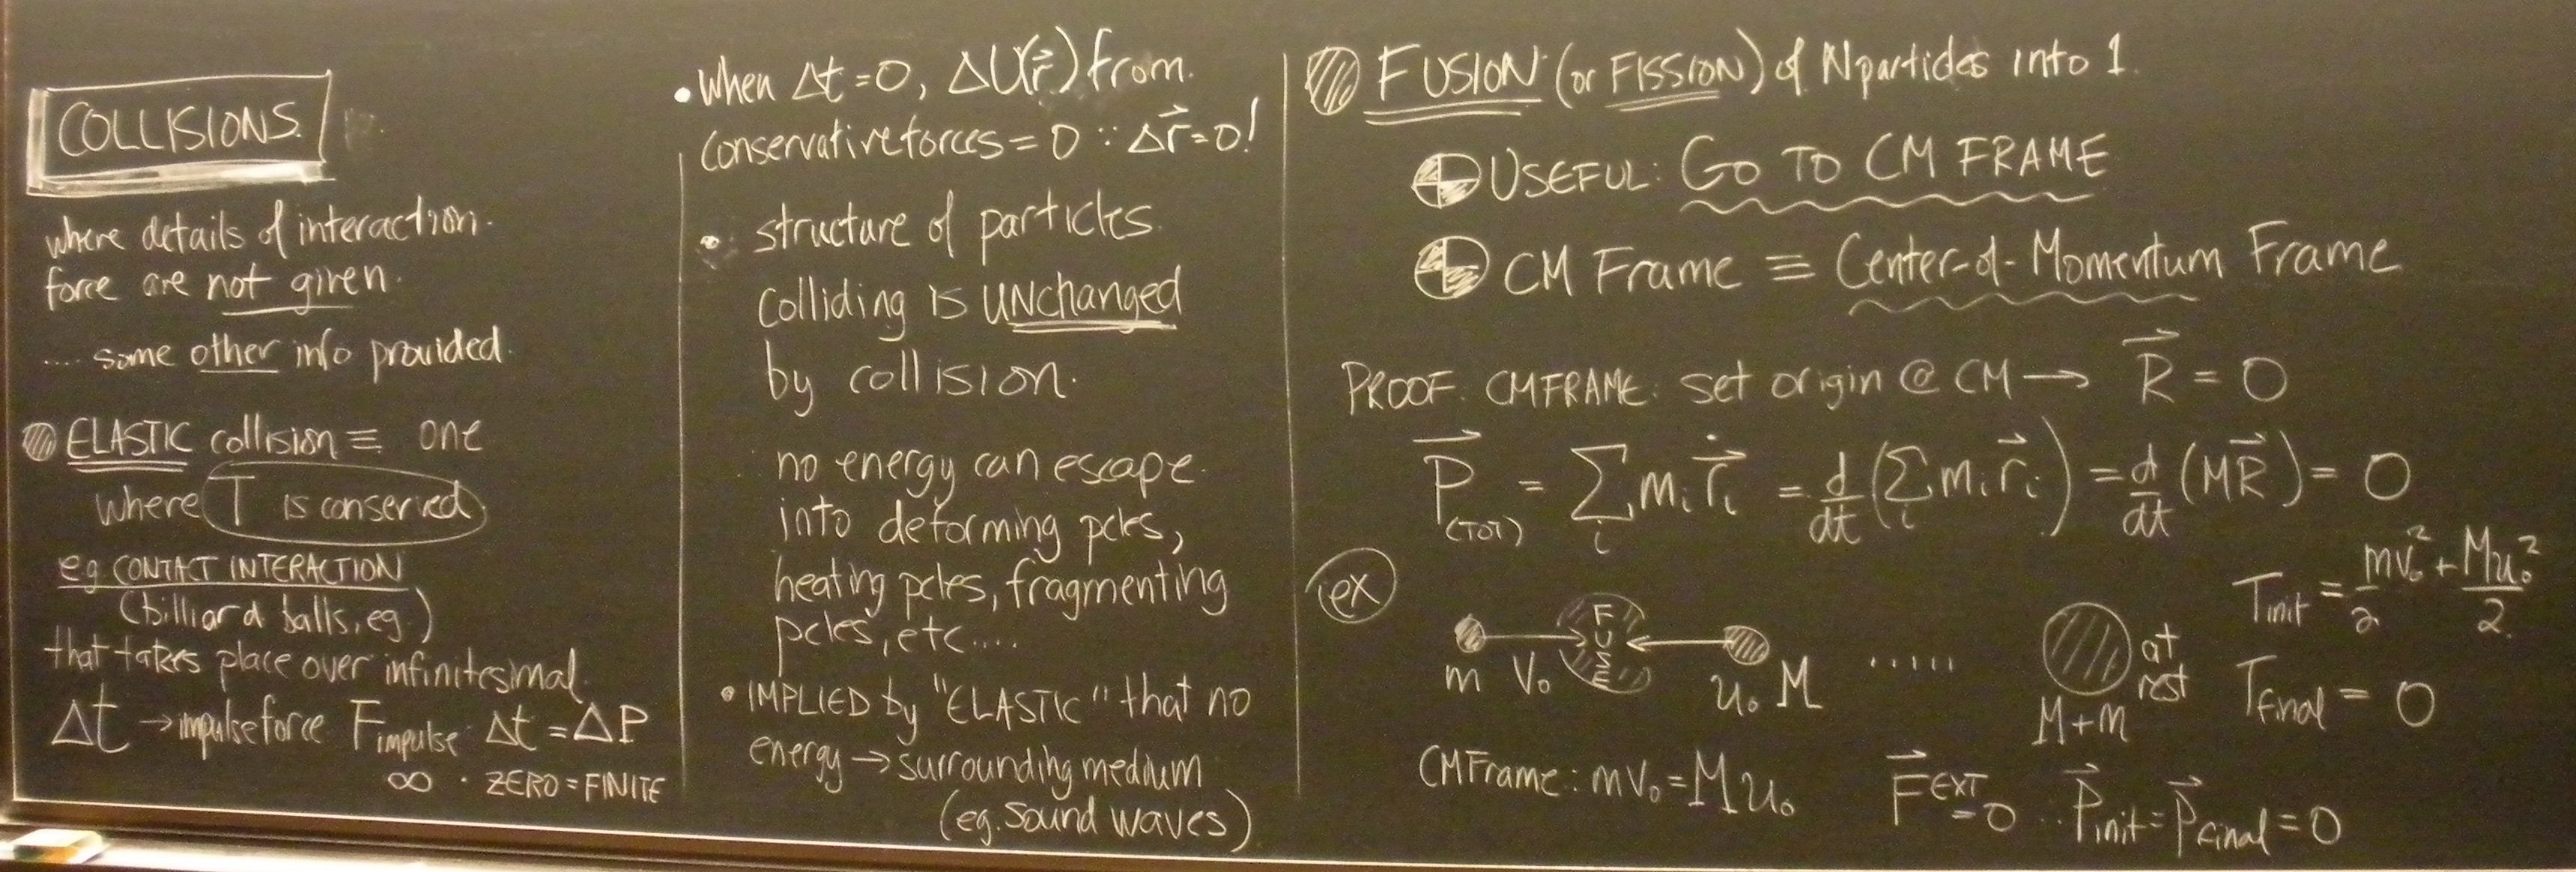 COLLISIONS.
where details of interaction
force are not given.
.... some other info provided.
ELASTIC collision ≡ one
where T is conserved
eg CONTACT INTERACTION
(billiard balls, eg.)
that takes place over infinitesimal
Δt → impulse force F⃗impulse Δt = ΔP
∞ · ZERO = FINITE
• when Δt = 0, ΔU(r⃗) from
conservative forces = 0 ∵ Δr⃗ = 0!
• structure of particles
colliding is UNchanged
by collision.
no energy can escape
into deforming pcles,
heating pcles, fragmenting
pcles, etc....
• IMPLIED by "ELASTIC" that no
energy → surrounding medium
(eg. sound waves)
FUSION (or FISSION) of N particles into 1.
USEFUL: GO TO CM FRAME
CM Frame ≡ Center-of-Momentum Frame
PROOF: CM FRAME: set origin @ CM → R⃗ = 0
P⃗(TOT) = Σi mi ṙ⃗i = d/dt (Σi mi r⃗i) = d/dt (MR⃗) = 0
ex
m v₀ FUSE u₀ M ..... M+m at rest
Tinit = mv₀²/2 + Mu₀²/2
Tfinal = 0
CM Frame: mv₀ = Mu₀
F⃗EXT = 0 ∴ P⃗init = P⃗final = 0